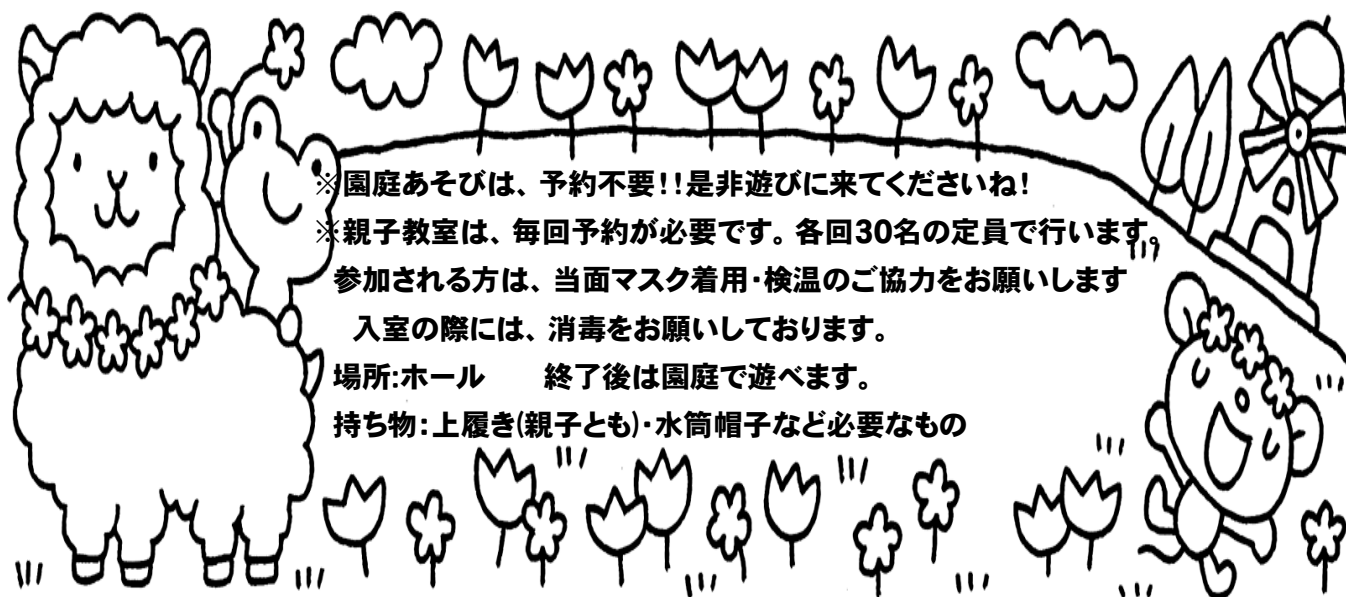 ※園庭あそびは、予約不要!!是非遊びに来てくださいね!
※親子教室は、毎回予約が必要です。各回30名の定員で行います。
参加される方は、当面マスク着用・検温のご協力をお願いします
入室の際には、消毒をお願いしております。
場所:ホール　　終了後は園庭で遊べます。
持ち物:上履き(親子とも)・水筒帽子など必要なもの